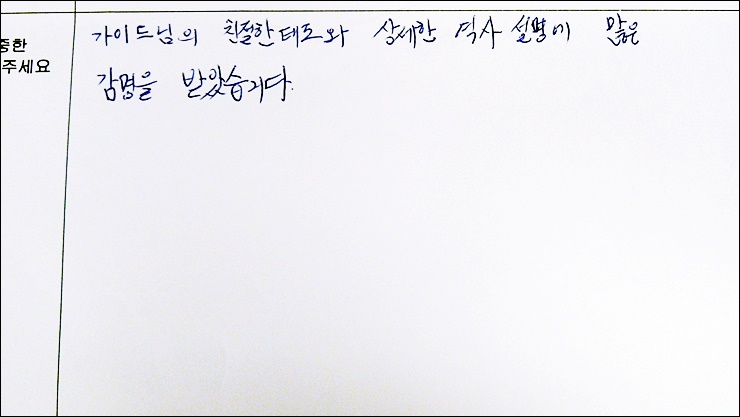 가이드님의 친절한 태도와 상세한 역사 설명에 많은
감명을 받았습니다.
중한
주세요